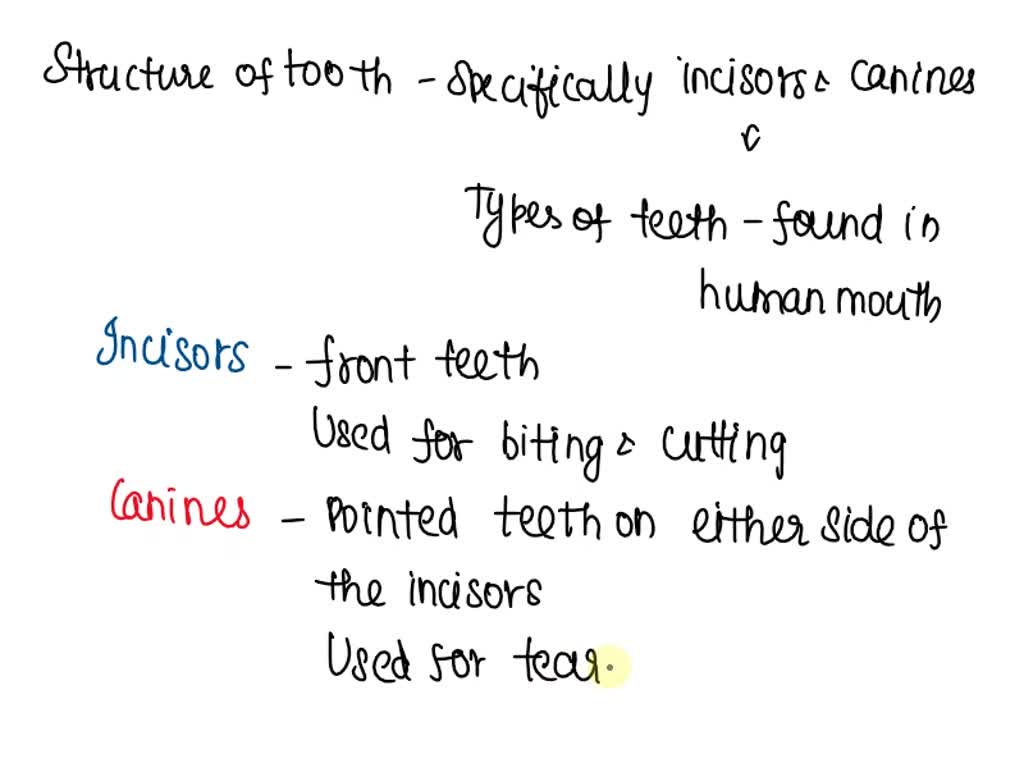 Structure of tooth - specifically incisors & canines
Types of teeth - found in
human mouth
Incisors - front teeth
Used for biting & cutting
Canines - Pointed teeth on either side of
the incisors
Used for tear